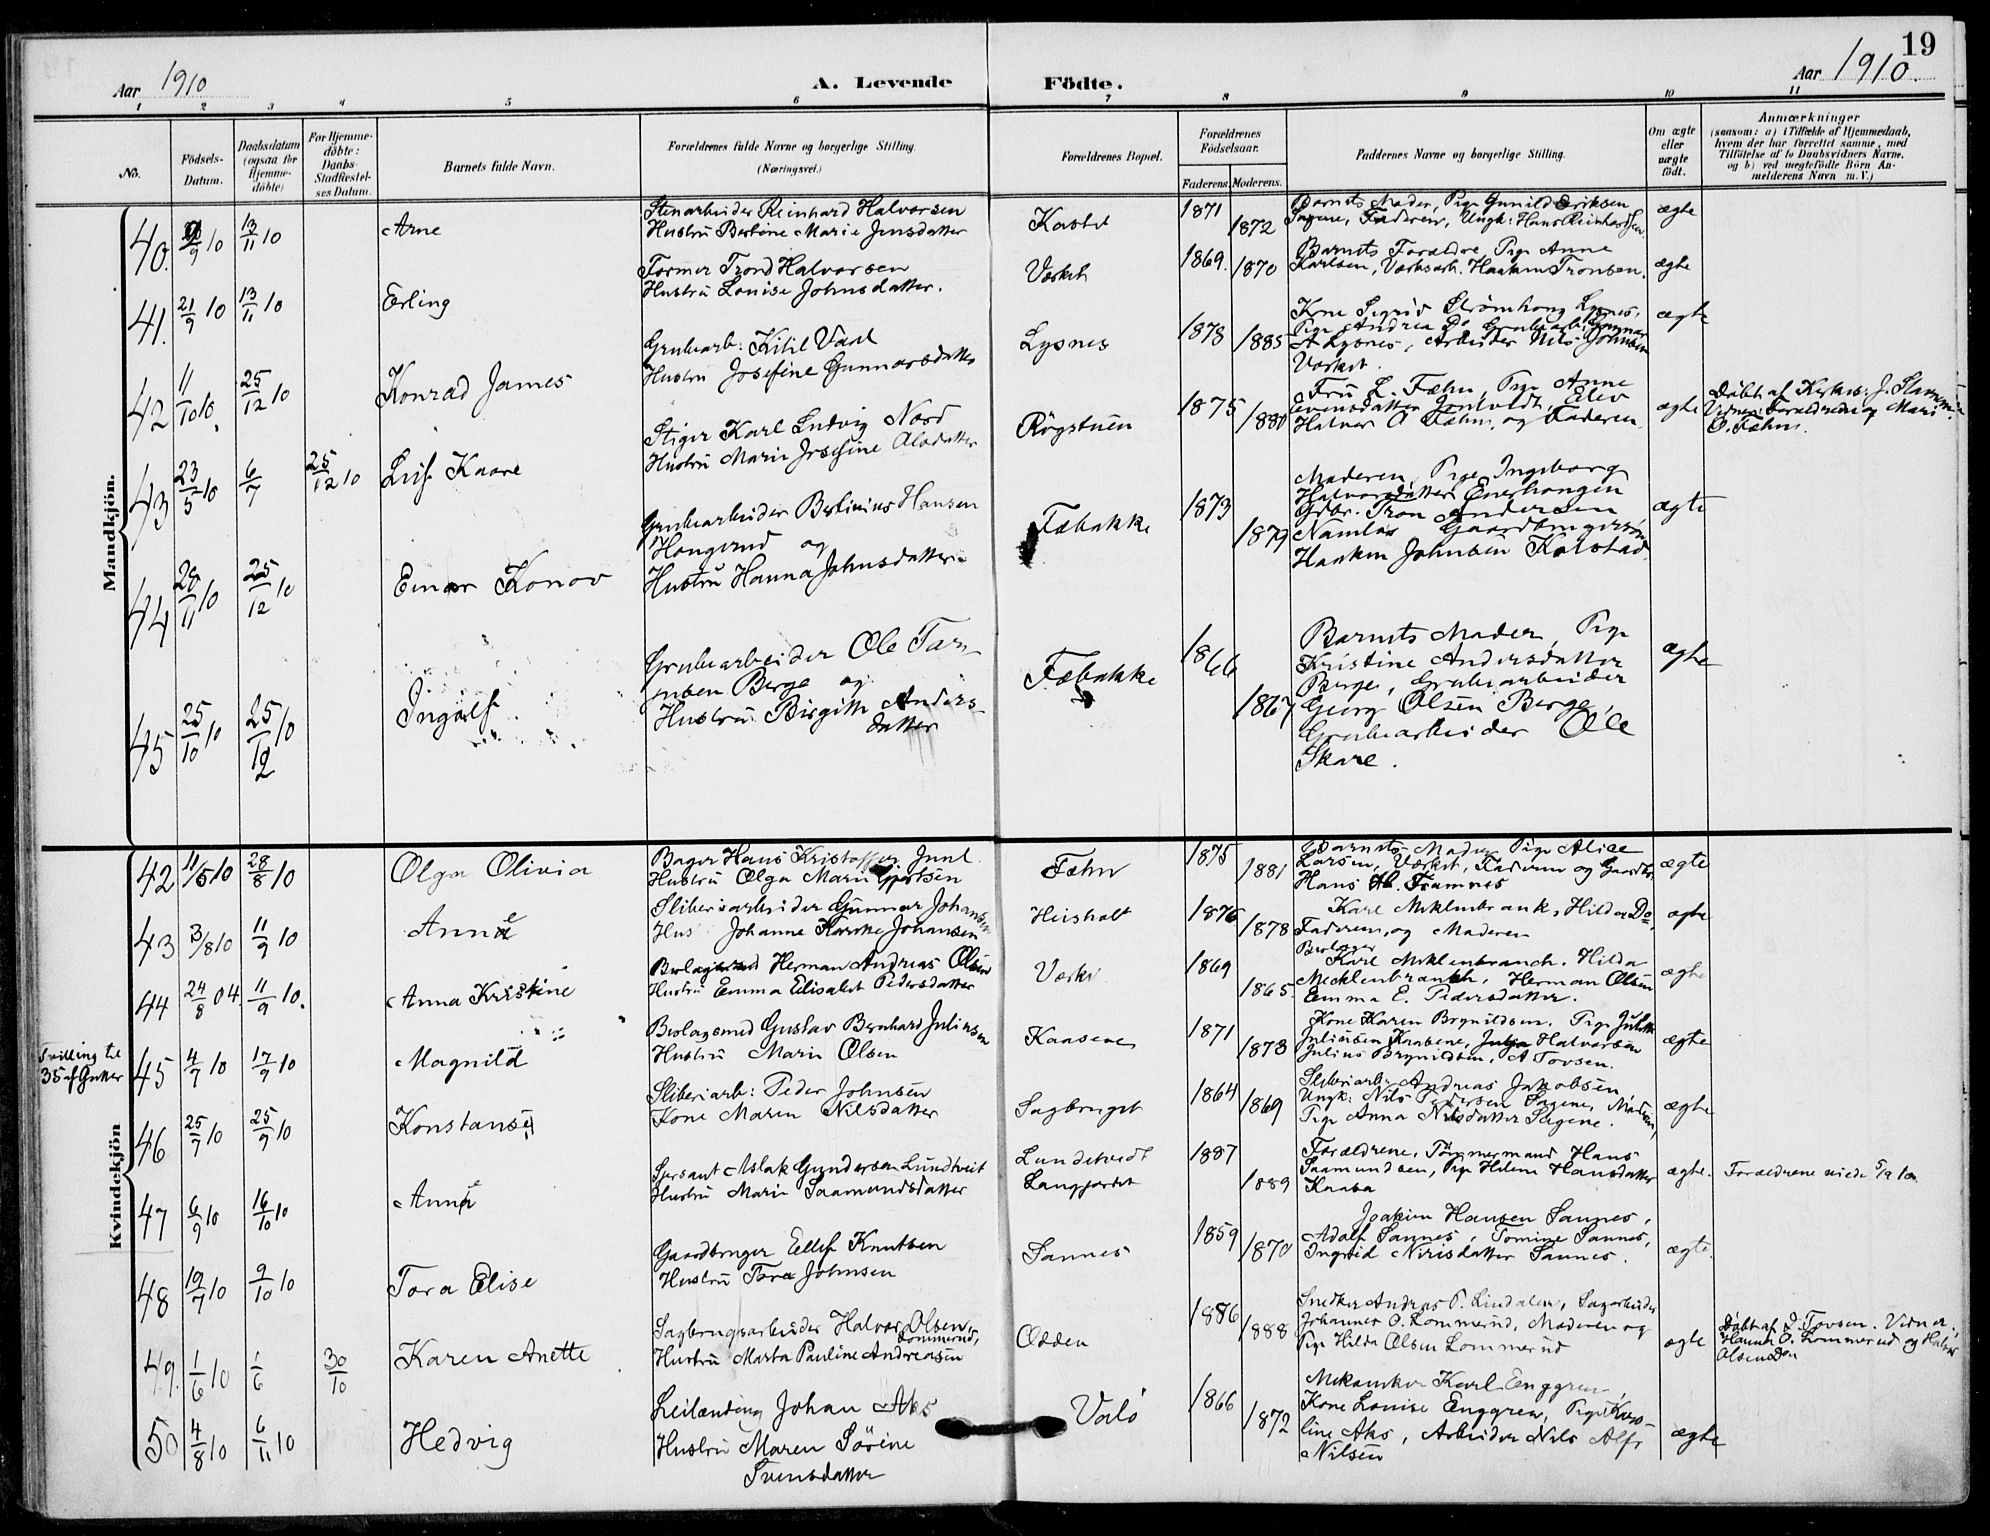 19
Aar 1910
A. Levende Födte.
Aar 1910.
1 2 3 4 5 6 7 8 9 10 11
No.
Födsels-
Datum.
Daabsdatum
(ogsaa for
Hjemme-
döbte)
For Hjemme-
döbte:
Daabs-
Stadfæstel-
ses Datum.
Barnets fulde Navn.
Forældrenes fulde Navne og borgerlige Stilling.
(Næringsvei.)
Forældrenes Bopæl.
Forældrenes
Födselsaar.
Faderens. Moderens.
Faddernes Navne og borgerlige Stilling.
Om ægte
eller
uægte
födt.
Anmærkninger
(saasom: a) i Tilfælde af Hjemmedaab,
hvem der har forrettet samme, med
Tilföielse af to Daabsvidners Navne.
og b) ved uægtefödte Börn An-
melderens Navn m. V.)
Mandkjön.
40. 9/9 10 13/11 10
Arne
Stenarbeider Reinhard Halvorsen
Hustru Bertine Marie Jensdatter
1871 1872
Barnets Moder, Pige Gunild Eriksen
Sagene, Faderen, Ungk: Hans Reinhardtsen
ægte
41. 21/9 10 13/11 10
Erling
Former Trond Halvorsen
Hustru Louise Johnsdatter.
Værket
1869. 1870
Barnets Forældre, Pige Anne
Karlsen, Værksarb. Haakon Tronsen.
ægte
42 11/10 10. 25/12 10
Konrad James
Grubearb: Kitil Vaal
Hustru Josefine Gunnarsdatter
Lysnes
1878 1885
Kone Sigrid Strømhong Lysnes,
Pige Andrea Do Grubearb. Gunnar
A Lysnes, Arbeider Nils Johnsen
Værket.
ægte
43 23/5 10 6/7 25/12 10
Leif Kaare
Stiger Karl Ludvig Nord
Hustru Marie Josefine Olsdatter
Røgstuen
1875 1880
Fru L. Fæhn, Pige Anne
Evensdatter, Elev
Halvor O Fæhn, og Faderen.
ægte
Døbt af Kirkes: J. Stamm.
Vidner: Forældrene og Mari
O. Fæhn.
44 28/11 10 25/12 10
Einar Konov
Grubearbeider Bertinius Hansen
Haugerud og
Hustru Hanna Johnsdatter
Fæbakke
1873 1879
Moderen, Pige Ingeborg
Halvorsdatter Enerhaugen
Gdbr. Tron Andersen
Namløs Gaardbrugersøn
Haakon Johnsen Kolstad
ægte
45 25/10 10 25/12 10
Ingolf
Grubearbeider Ole Tar-
jusen Berge og
Hustru Birgitte Anders-
datter
Fæbakke
1866 1867
Barnets Moder, Pige
Kristine Andersdatter
Berge, Grubearbeider
Georg Olsen Berge,
Grubearbeider Ole
Skare.
ægte
Kvindekjön
42 11/5 10 28/8 10
Olga Olivia
Bager Hans Kristoffer Juul
Hustru Olga Marie Gjertsen
Fæhn
1875 1881
Barnets Moder Pige Alice
Larsen, Værket, Faderen og Gaardbr.
Hans Framnes
ægte
43 3/8 10 11/9 10
Anna
Sliberiarbeider Gunnar Johansen
Hus Johanne Karine Johansen
Heisholt
1876 1878
Karl Meklenbrank, Hilda Do,
Faderen, og Moderen
ægte
44 24/8 04. 11/9 10.
Anna Kristine
Herman Andreas Olsen
Hustru Emma Elisabet Pedersdatter
Værket
1869 1865.
Karl Meklenbranch. Hilda
Mecklenbranch, Herman Olsen
Emma E. Pedersdatter.
ægte
Tvilling til
35 af Gutter
45 4/7 10 17/9 10
Magnild
Beslagsmed Gustav Bernhard Juliusen
Hustru Marie Olsen
Kaasene
1871 1873
Kone Karen Brynildsen. Pige Julette
Juliussen Kaasene, Julia Halvorsen
Julius Brynildsen, A Tovsen.
ægte
46 25/7 10 25/9 10
Konstanse
Sliberiarb: Peder Johnsen
Kone Maren Nilsdatter
Sagbruget
1864 1869
Sliberiarb: Andreas Jakobsen,
Ungk: Nils Pedersen Sagene, Moderen,
Pige Anna Nilsdatter Sagene.
ægte
47 6/9 10 16/10 10
Anna
Sersant Aslak Gundersen Lundtveit
Hustru Marie Saamundsdatter
Lundetvedt
Langjordet
1887 1889
Forældrene, Tømmermand Hans
Saamundsen, Pige Helene Hansdatter
Kaasa
ægte.
Forældrene viede 5/9 10
48 19/7 10 9/10 10
Tora Elise
Gaardbruger Ellef Knutsen
Hustru Tora Johnsen
Sannes
1859 1870
Joakim Hansen Sannes,
Adolf Sannes, Tomine Sannes,
Ingrid Nirisdatter Sannes.
ægte.
49. 1/6 10 1/6 30/10
Karen Anette
Sagbrugsarbeider Halvor Olsen
Lommerud,
Hustru Marta Pauline Andreasen
Odden
1886 1888
Snedker Andreas P. Lindalen, Sagarbeider
Johannes O. Lommerud, Moderen og
Pige Hilda Olsen Lommerud
ægte
Døbt af J. Tovsen. Vidner:
Hanna O. Lommerud og Halvor
Olsen Do
50 4/8 10 6/11 10
Hedvig
Leilænding Johan Aks
Hustru Maren Sörine
Svensdatter
Valø
1866 1872
Mekaniker Karl Enggren,
Kone Louise Enggren, Pige Karo-
line Aks, Arbeider Nils Alfr
Nilsen
ægte